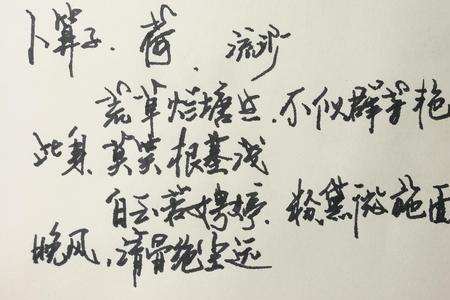 卜算子.荷.流
荒草烂塘 .不似群芳艳
此身莫笑根基浅
自云若娉婷.粉黛微施面
晚风,清骨绝尘远